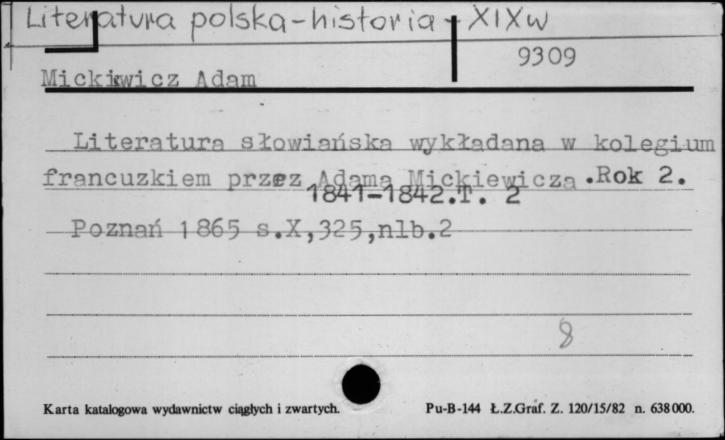 Literatura polska-historia-XIXw
9309
Mickiewicz Adam
Literatura słowiańska wykładana w kolegium
francuzkiem przez Adama Mickiewicza.Rok 2.
1841-1842.T. 2
Poznań 1865 s.X,325,nlb.2
8
Karta katalogowa wydawnictw ciągłych i zwartych.
Pu-B-144 Ł.Z.Graf. Z. 120/15/82 n. 638000.